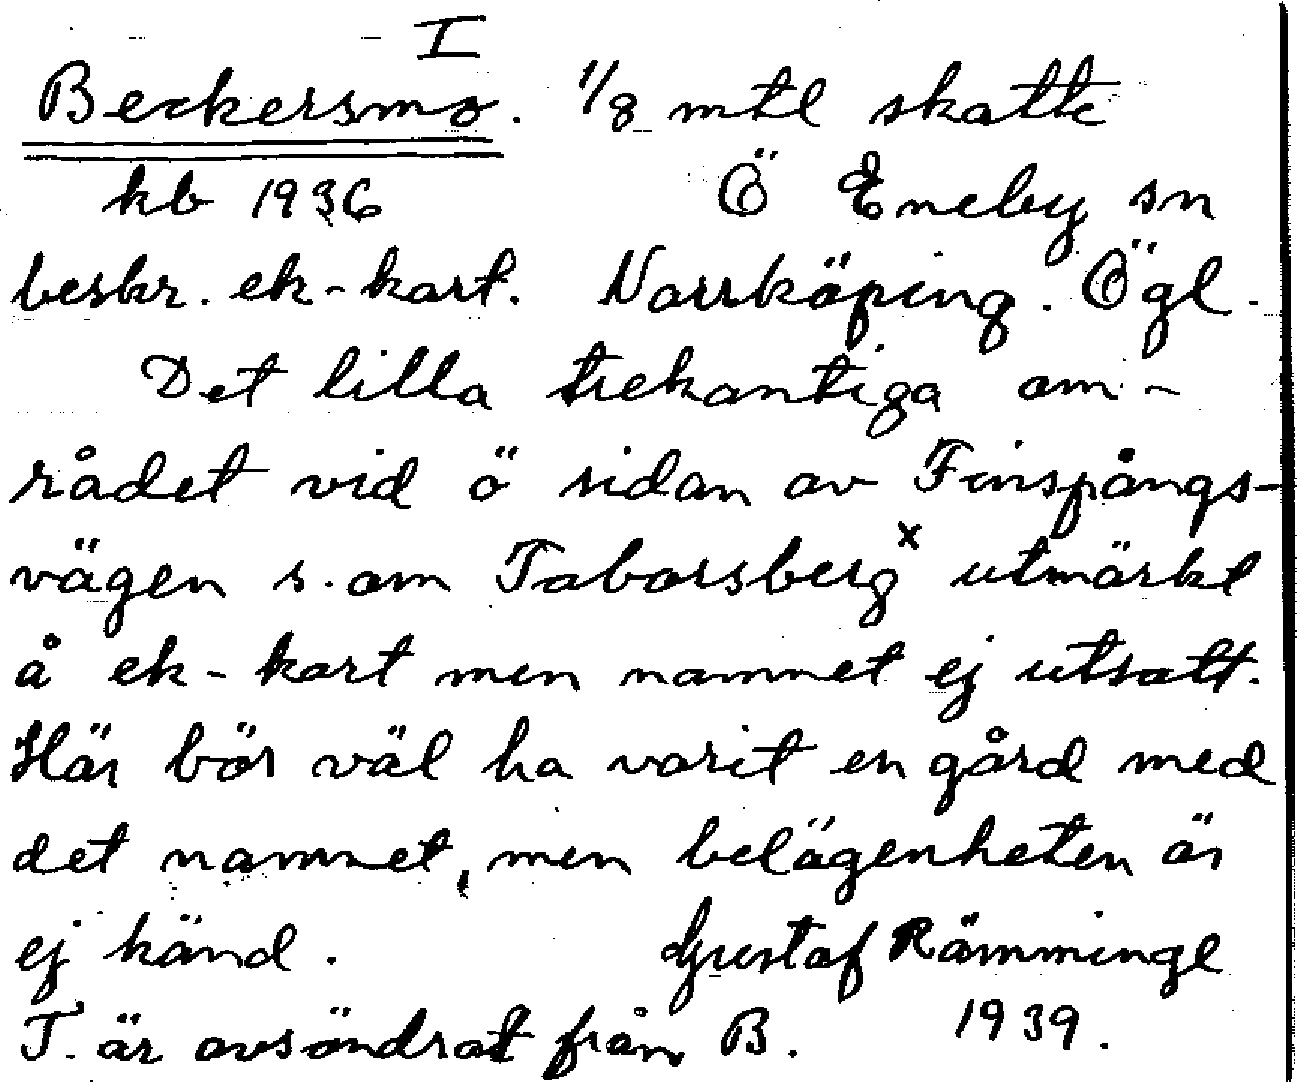 I
Beckersmo. 1/8 mtl skatte
kb 1936 Ö Eneby sn
beskr. ek-kart. Norrköping. Ögl.
Det lilla trekantiga om-
rådet vid ö sidan av Finspångs-
vägen s. om Taborsberg x utmärkt
å ek-kart men namnet ej utsatt.
Här bör väl ha varit en gård med
det namnet, men belägenheten är
ej känd. Gustaf Rämminge
T. är avsöndrat från B. 1939.